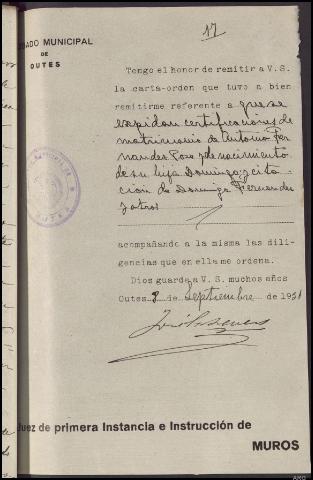 17
JUZGADO MUNICIPAL
DE
OUTES
Tengo el honor de remitir a V. S.
la carta-orden que tuvo a bien
remitirme referente a que se
expidan certificaciones de
matrimonio de Antonio Fer-
nandez Poso y de nacimiento
de su hija Dominga y cita-
ción de Dominga Fernandez
y otros
acompañando a la misma las dili-
gencias que en ella me ordena.
Dios guarde a V. S. muchos años
Outes 9 de Septiembre de 1921
Juez de primera Instancia e Instrucción de
MUROS